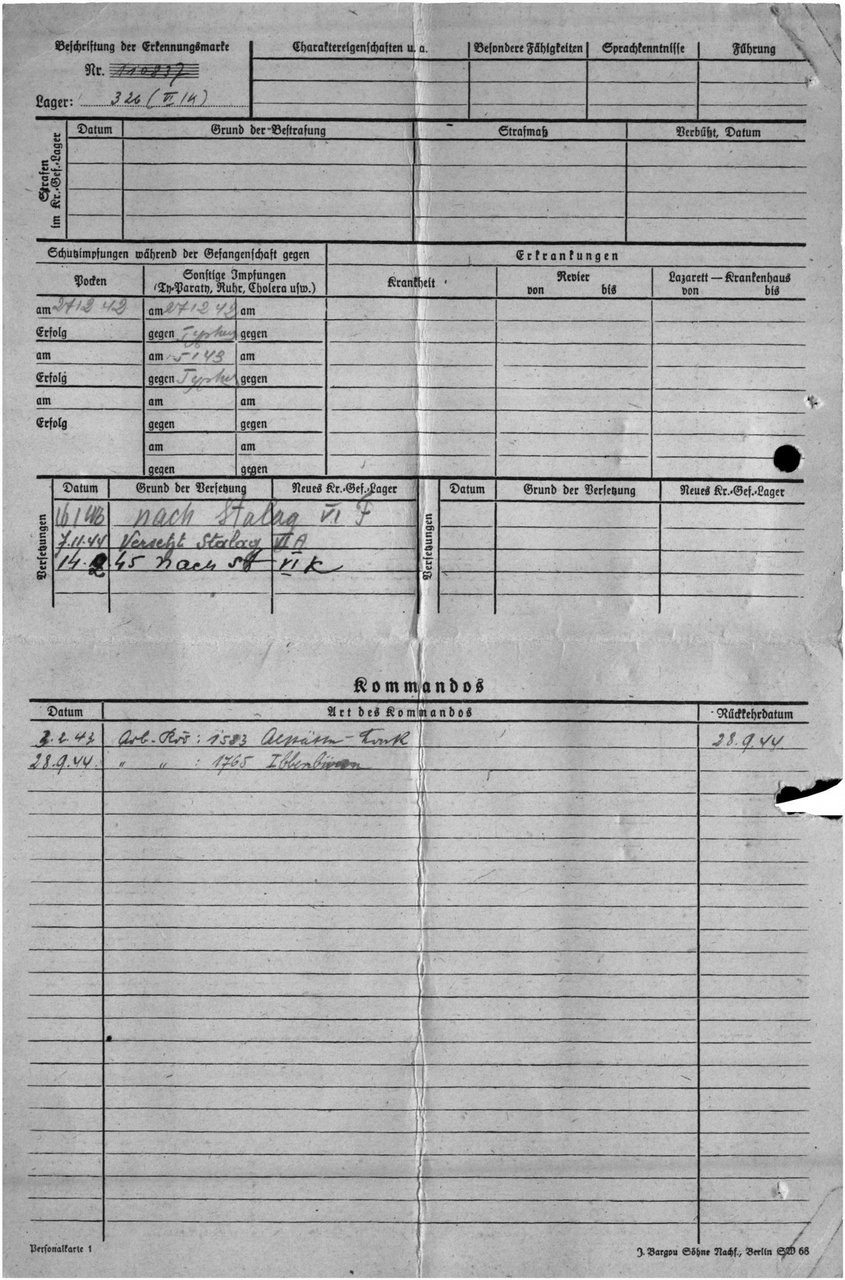 Beschriftung der Erkennungsmarke
Nr. 110837
Lager: 326 (VI K)
Charaktereigenschaften u. a. Besondere Fähigkeiten Sprachkenntnisse Führung
Strafen im Kr.-Gef.-Lager
Datum Grund der Bestrafung Strafmaß Verbüßt, Datum
Schutzimpfungen während der Gefangenschaft gegen
Erkrankungen
Pocken
Sonstige Impfungen
(Ty-Paraty, Ruhr, Cholera usw.)
Krankheit
Revier
von bis
Lazarett — Krankenhaus
von bis
am 27 12 42 am 27 12 42 am
Erfolg gegen Typhus gegen
am am 5 1 43 am
Erfolg gegen Typhus gegen
am am am
Erfolg gegen gegen
am am
gegen gegen
Versetzungen
Datum Grund der Versetzung Neues Kr.-Gef.-Lager
16 1 43 nach Stalag VI F
7.11.44 Versetzt Stalag VI A
14.2 45 Nach VI K
Versetzungen
Datum Grund der Versetzung Neues Kr.-Gef.-Lager
Kommandos
Datum Art des Kommandos Rückkehrdatum
2.2.43 Arb.-Kdo: 1583 28.9.44
28.9.44. " " : 1765 Ibbenbüren
Personalkarte 1
J. Bargou Söhne Nachf., Berlin SW 68